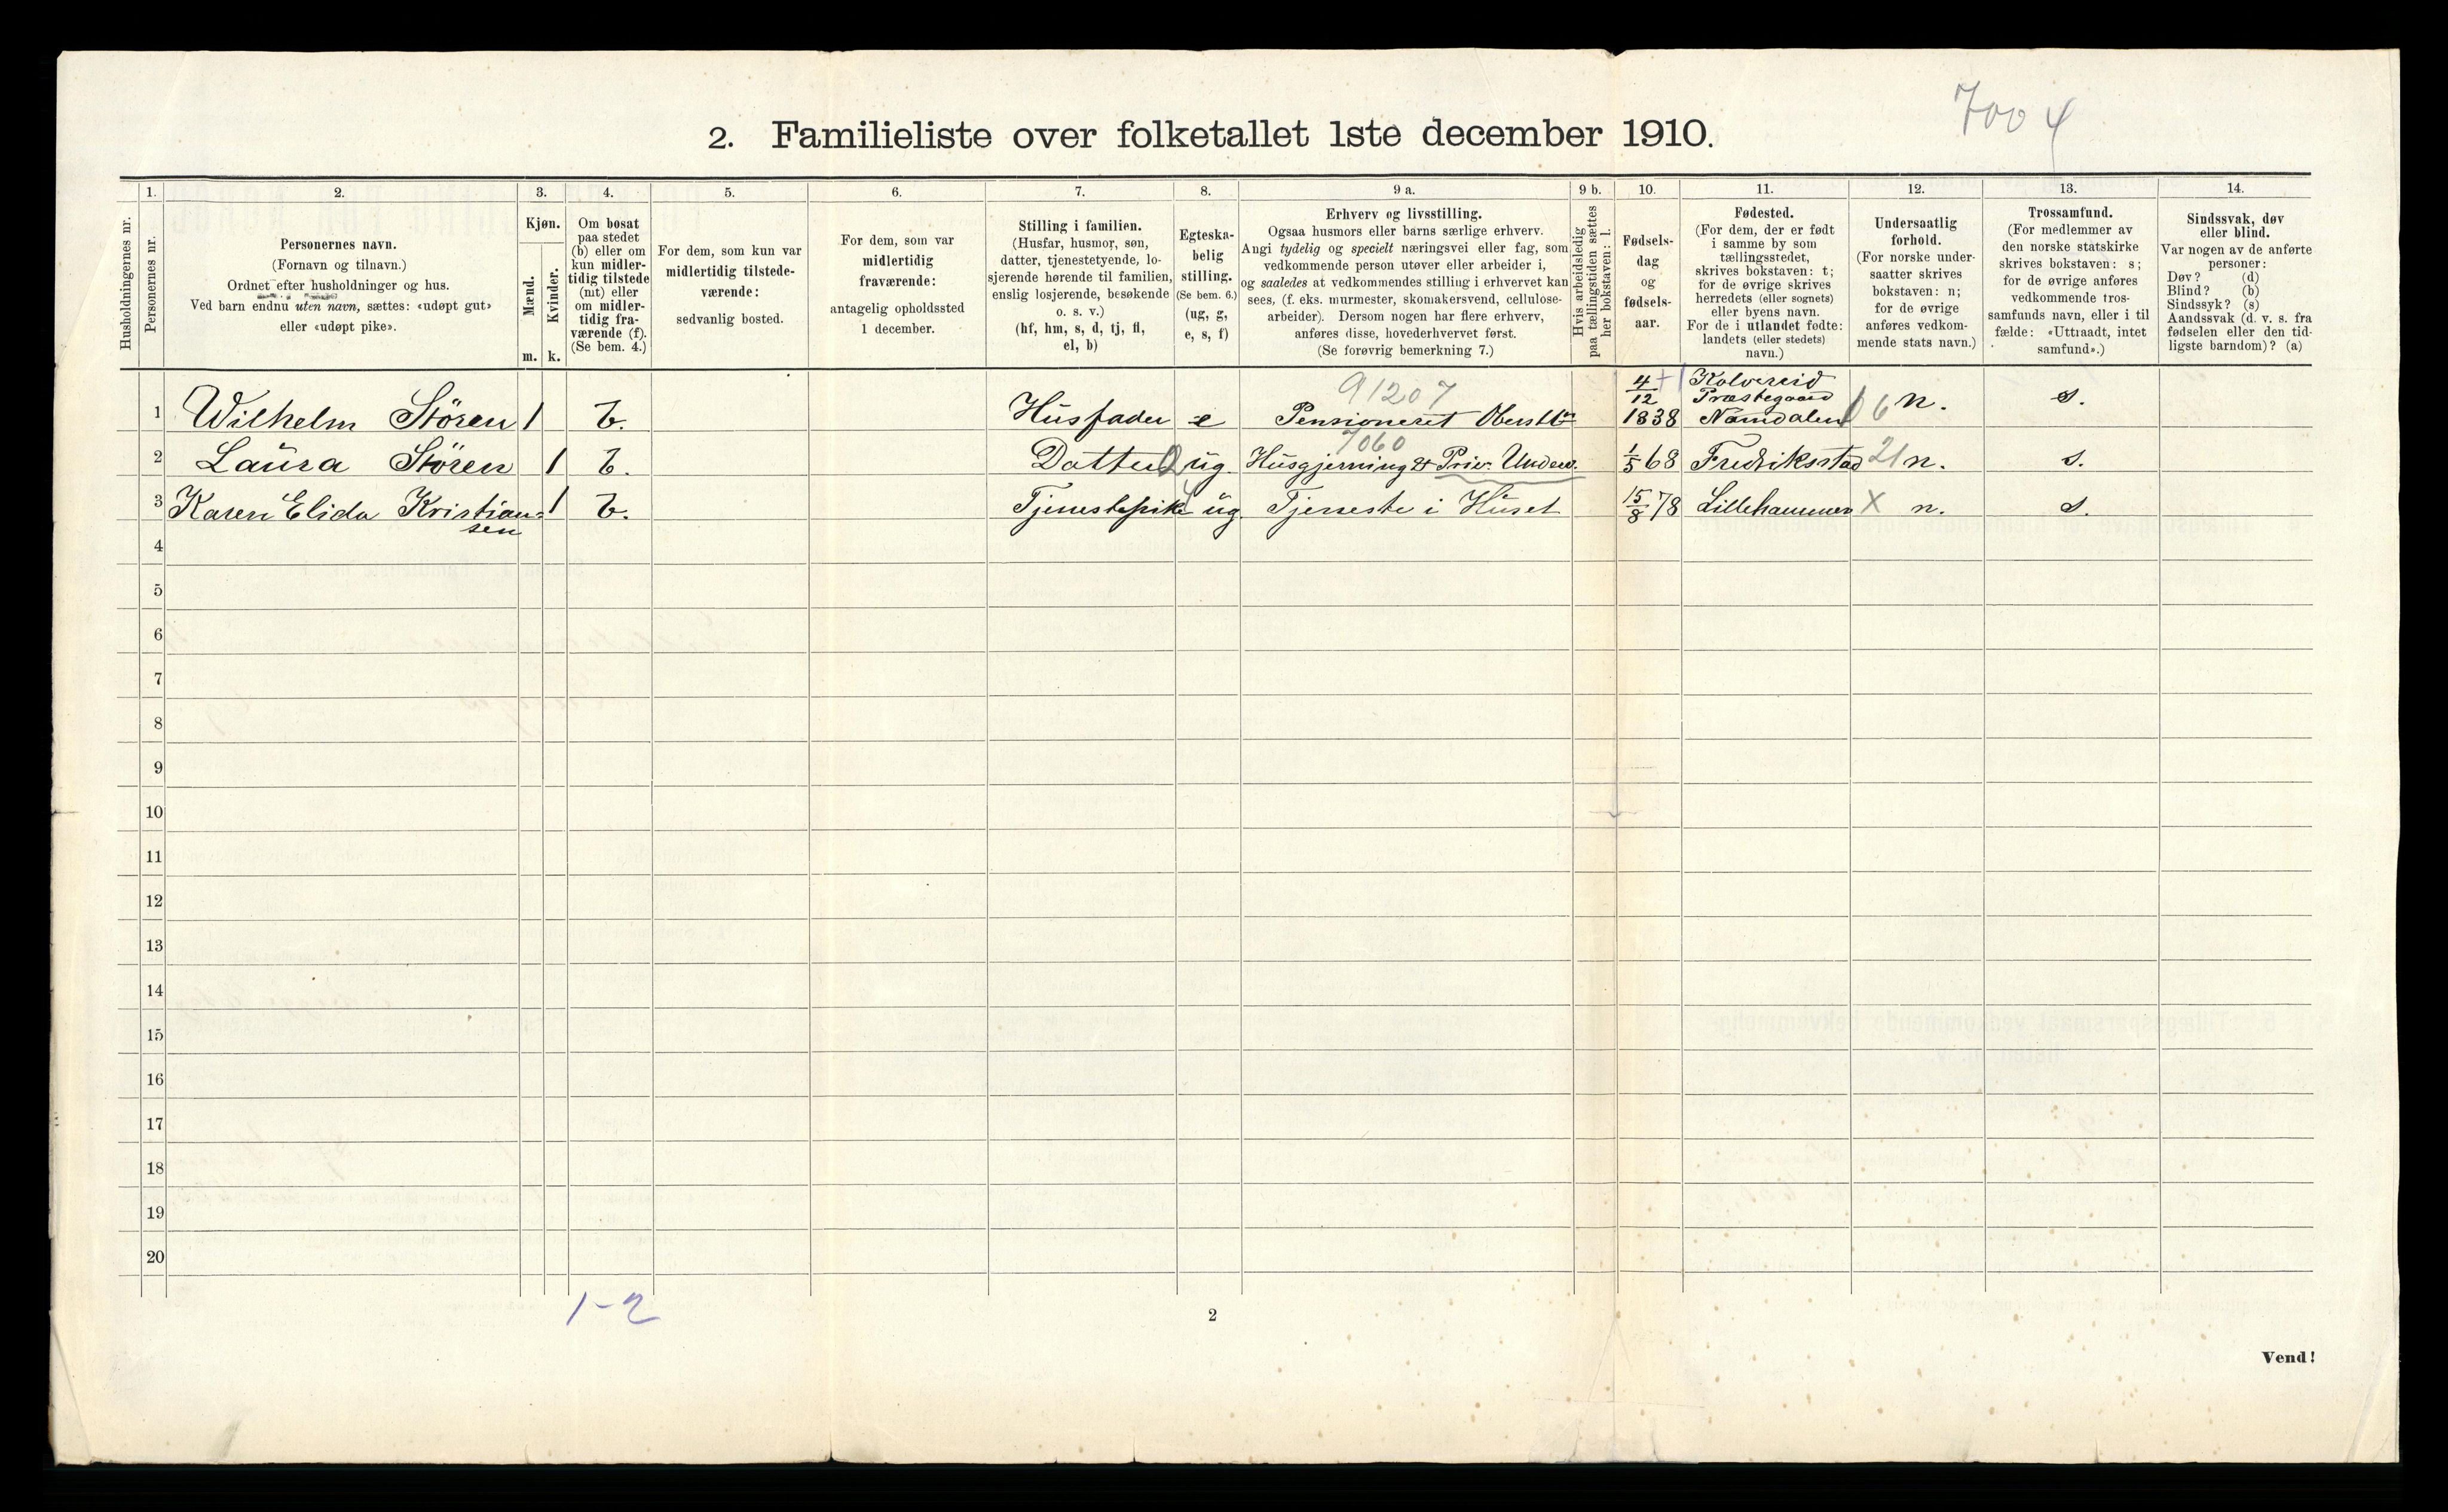 7004
2. Familieliste over folketallet 1ste december 1910.
1. 2. 3. 4. 5. 6. 7. 8. 9 a. 9 b. 10. 11. 12. 13. 14.
Husholdningernes nr.
Personernes nr.
Personernes navn.
(Fornavn og tilnavn.)
Ordnet efter husholdninger og hus.
Ved barn endnu uten navn, sættes: «udøpt gut»
eller «udøpt pike».
Kjøn.
Mænd.
Kvinder.
m. k.
Om bosat
paa stedet
(b) eller om
kun midler-
tidig tilstede
(mt) eller
om midler-
tidig fra-
værende (f).
(Se bem. 4.)
For dem, som kun var
midlertidig tilstede-
værende:
sedvanlig bosted.
For dem, som var
midlertidig
fraværende:
antagelig opholdssted
1 december.
Stilling i familien.
(Husfar, husmor, søn,
datter, tjenestetyende, lo-
sjerende hørende til familien,
enslig losjerende, besøkende
o. s. v.)
(hf, hm, s, d, tj, fl,
el, b)
Egteska-
belig
stilling.
(Se bem. 6.)
(ug, g,
e, s, f)
Erhverv og livsstilling.
Ogsaa husmors eller barns særlige erhverv.
Angi tydelig og specielt næringsvei eller fag, som
vedkommende person utøver eller arbeider i,
og saaledes at vedkommendes stilling i erhvervet kan
sees, (f. eks. murmester, skomakersvend, cellulose-
arbeider). Dersom nogen har flere erhverv,
anføres disse, hovederhvervet først.
(Se forøvrig bemerkning 7.)
Hvis arbeidsledig
paa tællingstiden sættes
her bokstaven: l.
Fødsels-
dag
og
fødsels-
aar.
Fødested.
(For dem, der er født
i samme by som
tællingsstedet,
skrives bokstaven: t;
for de øvrige skrives
herredets (eller sognets)
eller byens navn.
For de i utlandet fødte:
landets (eller stedets)
navn.)
Undersaatlig
forhold.
(For norske under-
saatter skrives
bokstaven: n;
for de øvrige
anføres vedkom-
mende stats navn.)
Trossamfund.
(For medlemmer av
den norske statskirke
skrives bokstaven: s;
for de øvrige anføres
vedkommende tros-
samfunds navn, eller i til
fælde: «Uttraadt, intet
samfund».)
Sindssvak, døv
eller blind.
Var nogen av de anførte
personer:
Døv? (d)
Blind? (b)
Sindssyk? (s)
Aandssvak (d. v. s. fra
fødselen eller den tid-
ligste barndom)? (a)
91207
4/12 Kolvereid
Præstegaard
1 Wilhelm Stören 1 b. Husfader e Pensioneret Obersttl 1838 Namdalen 6 n. s.
7060
2 Laura Stören 1 b. Datter ug. Husgjerning & Priv. Underv. 1/5 68 Fredriksstad 21 n. s.
3 Karen Elida Kristian- 1 b. Tjenestepike ug Tjeneste i Huset 15/8 78 Lillehammer X n. s.
sen
4
5
6
7
8
9
10
11
12
13
14
15
16
17
18
19
20
1-2
2
Vend!